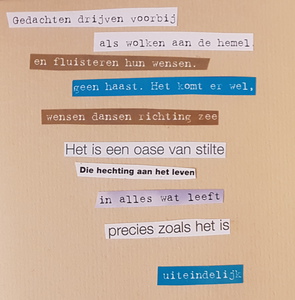 Gedachten drijven voorbij
als wolken aan de hemel
en fluisteren hun wensen.
geen haast. Het komt er wel,
wensen dansen richting zee
Het is een oase van stilte
Die hechting aan het leven
in alles wat leeft
precies zoals het is
uiteindelijk